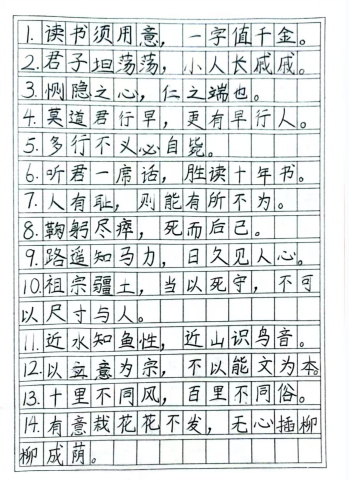 1.读书须用意，一字值千金。
2.君子坦荡荡，小人长戚戚。
3.恻隐之心，仁之端也。
4.莫道君行早，更有早行人。
5.多行不义必自毙。
6.听君一席话，胜读十年书。
7.人有耻，则能有所不为。
8.鞠躬尽瘁，死而后已。
9.路遥知马力，日久见人心。
10.祖宗疆土，当以死守，不可
以尺寸与人。
11.近水知鱼性，近山识鸟音。
12.以立意为宗，不以能文为本。
13.十里不同风，百里不同俗。
14.有意栽花花不发，无心插柳
柳成荫。